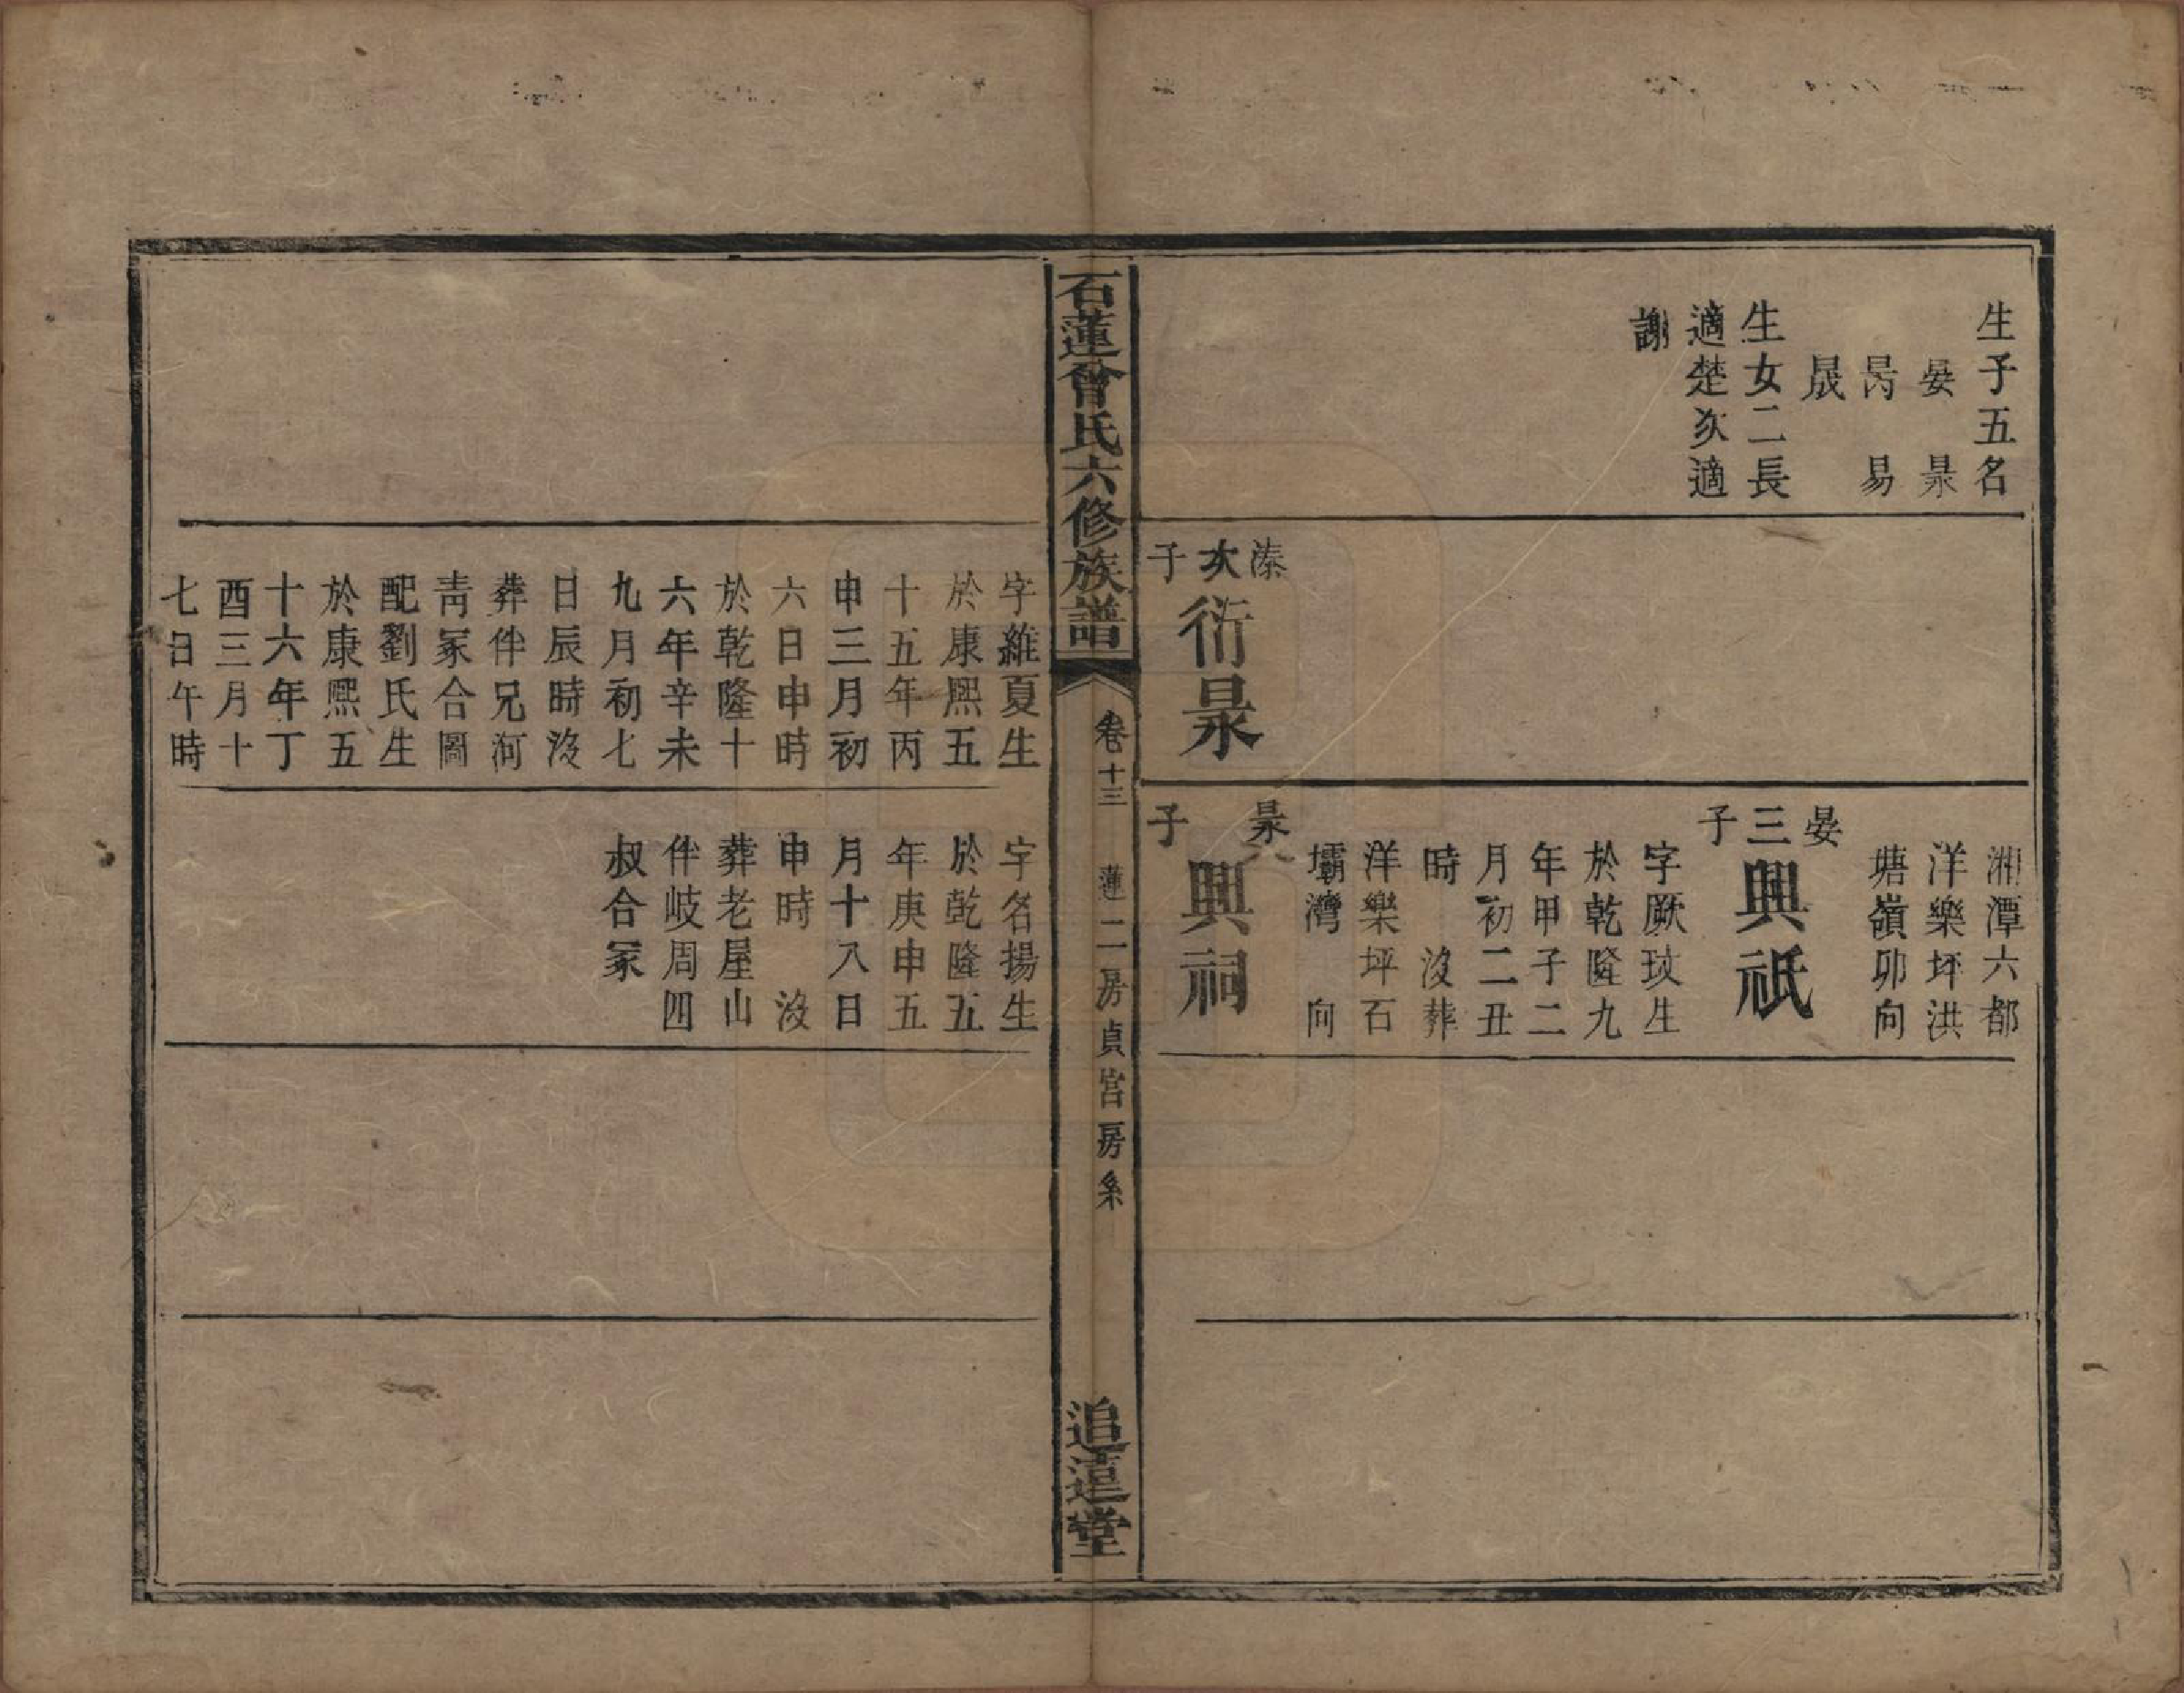 生子五名
晏　晸
昺　易
晟
生女二長
適楚次適
謝
溱次子
衍晸
湘潭六都
洋樂坪洪
塘嶺卯向
晏三子
興祇
字厥玟生
於乾隆九
年甲子二
月初二丑
時　沒葬
洋樂坪石
壩灣　向
子
興祠
石蓮曾氏六修族譜
卷十三
蓮二房貞宮房系
追遠堂
字維夏生
於康熙五
十五年丙
申三月初
六日申時
於乾隆十
六年辛未
九月初七
日辰時沒
葬伴兄河
青冢合圖
配劉氏生
於康熙五
十六年丁
酉三月十
七日午時
字名揚生
於乾隆五
年庚申五
月十八日
申時　沒
葬老屋山
伴岐周四
叔合冢